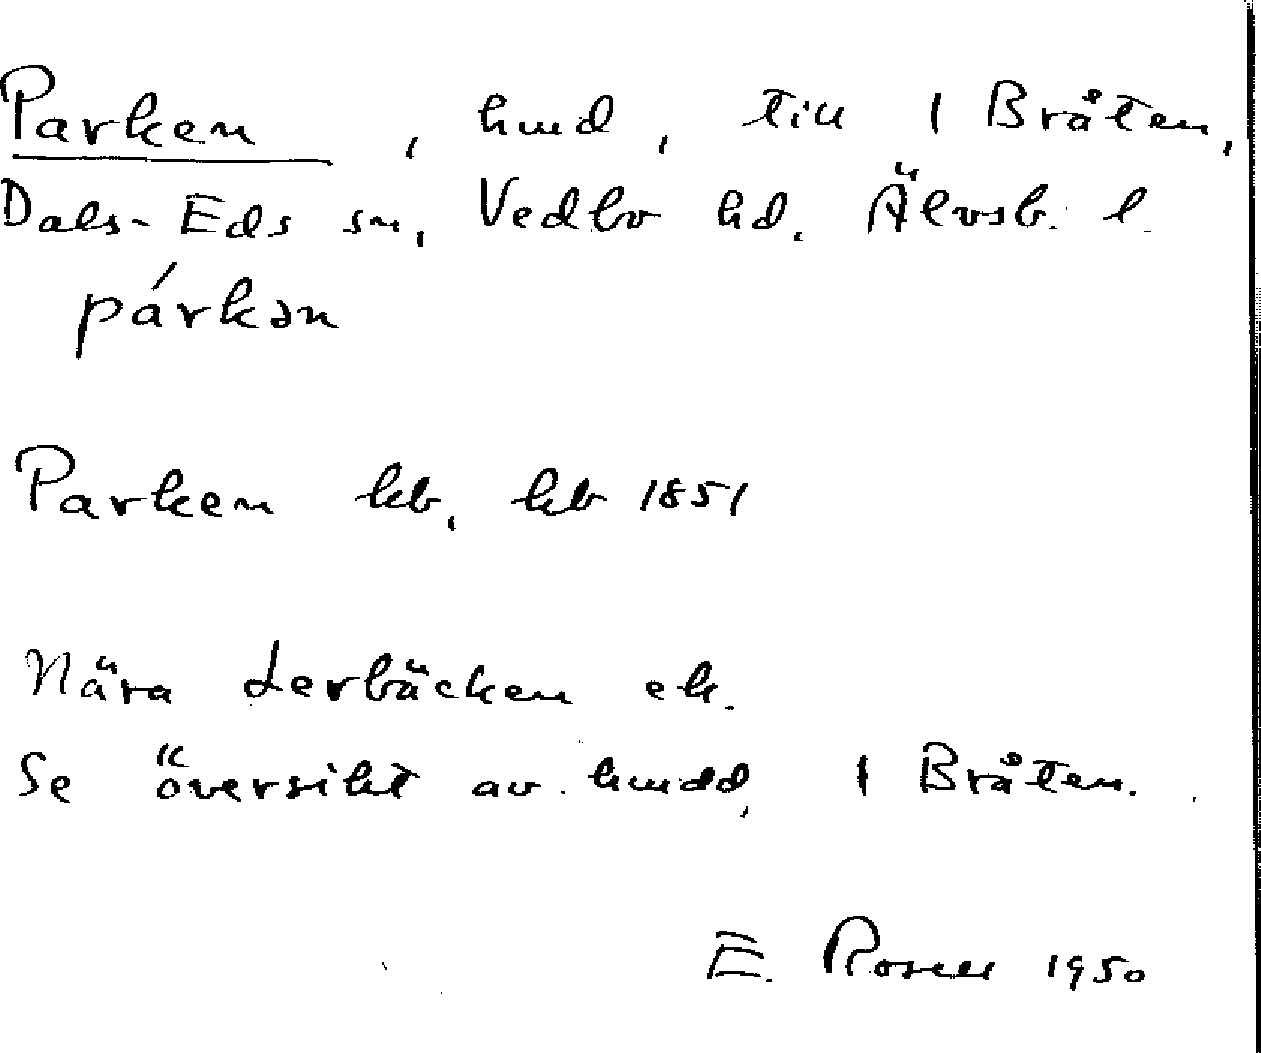 Parken, hmd, till 1 Bråten,
Dals-Eds sn, Vedbo hd. Älvsb. l.
párkən
Parken kb, kb 1851
Nära Lerbäcken ek.
Se översikt av hmdd, 1 Bråten.
E. Rosell 1950